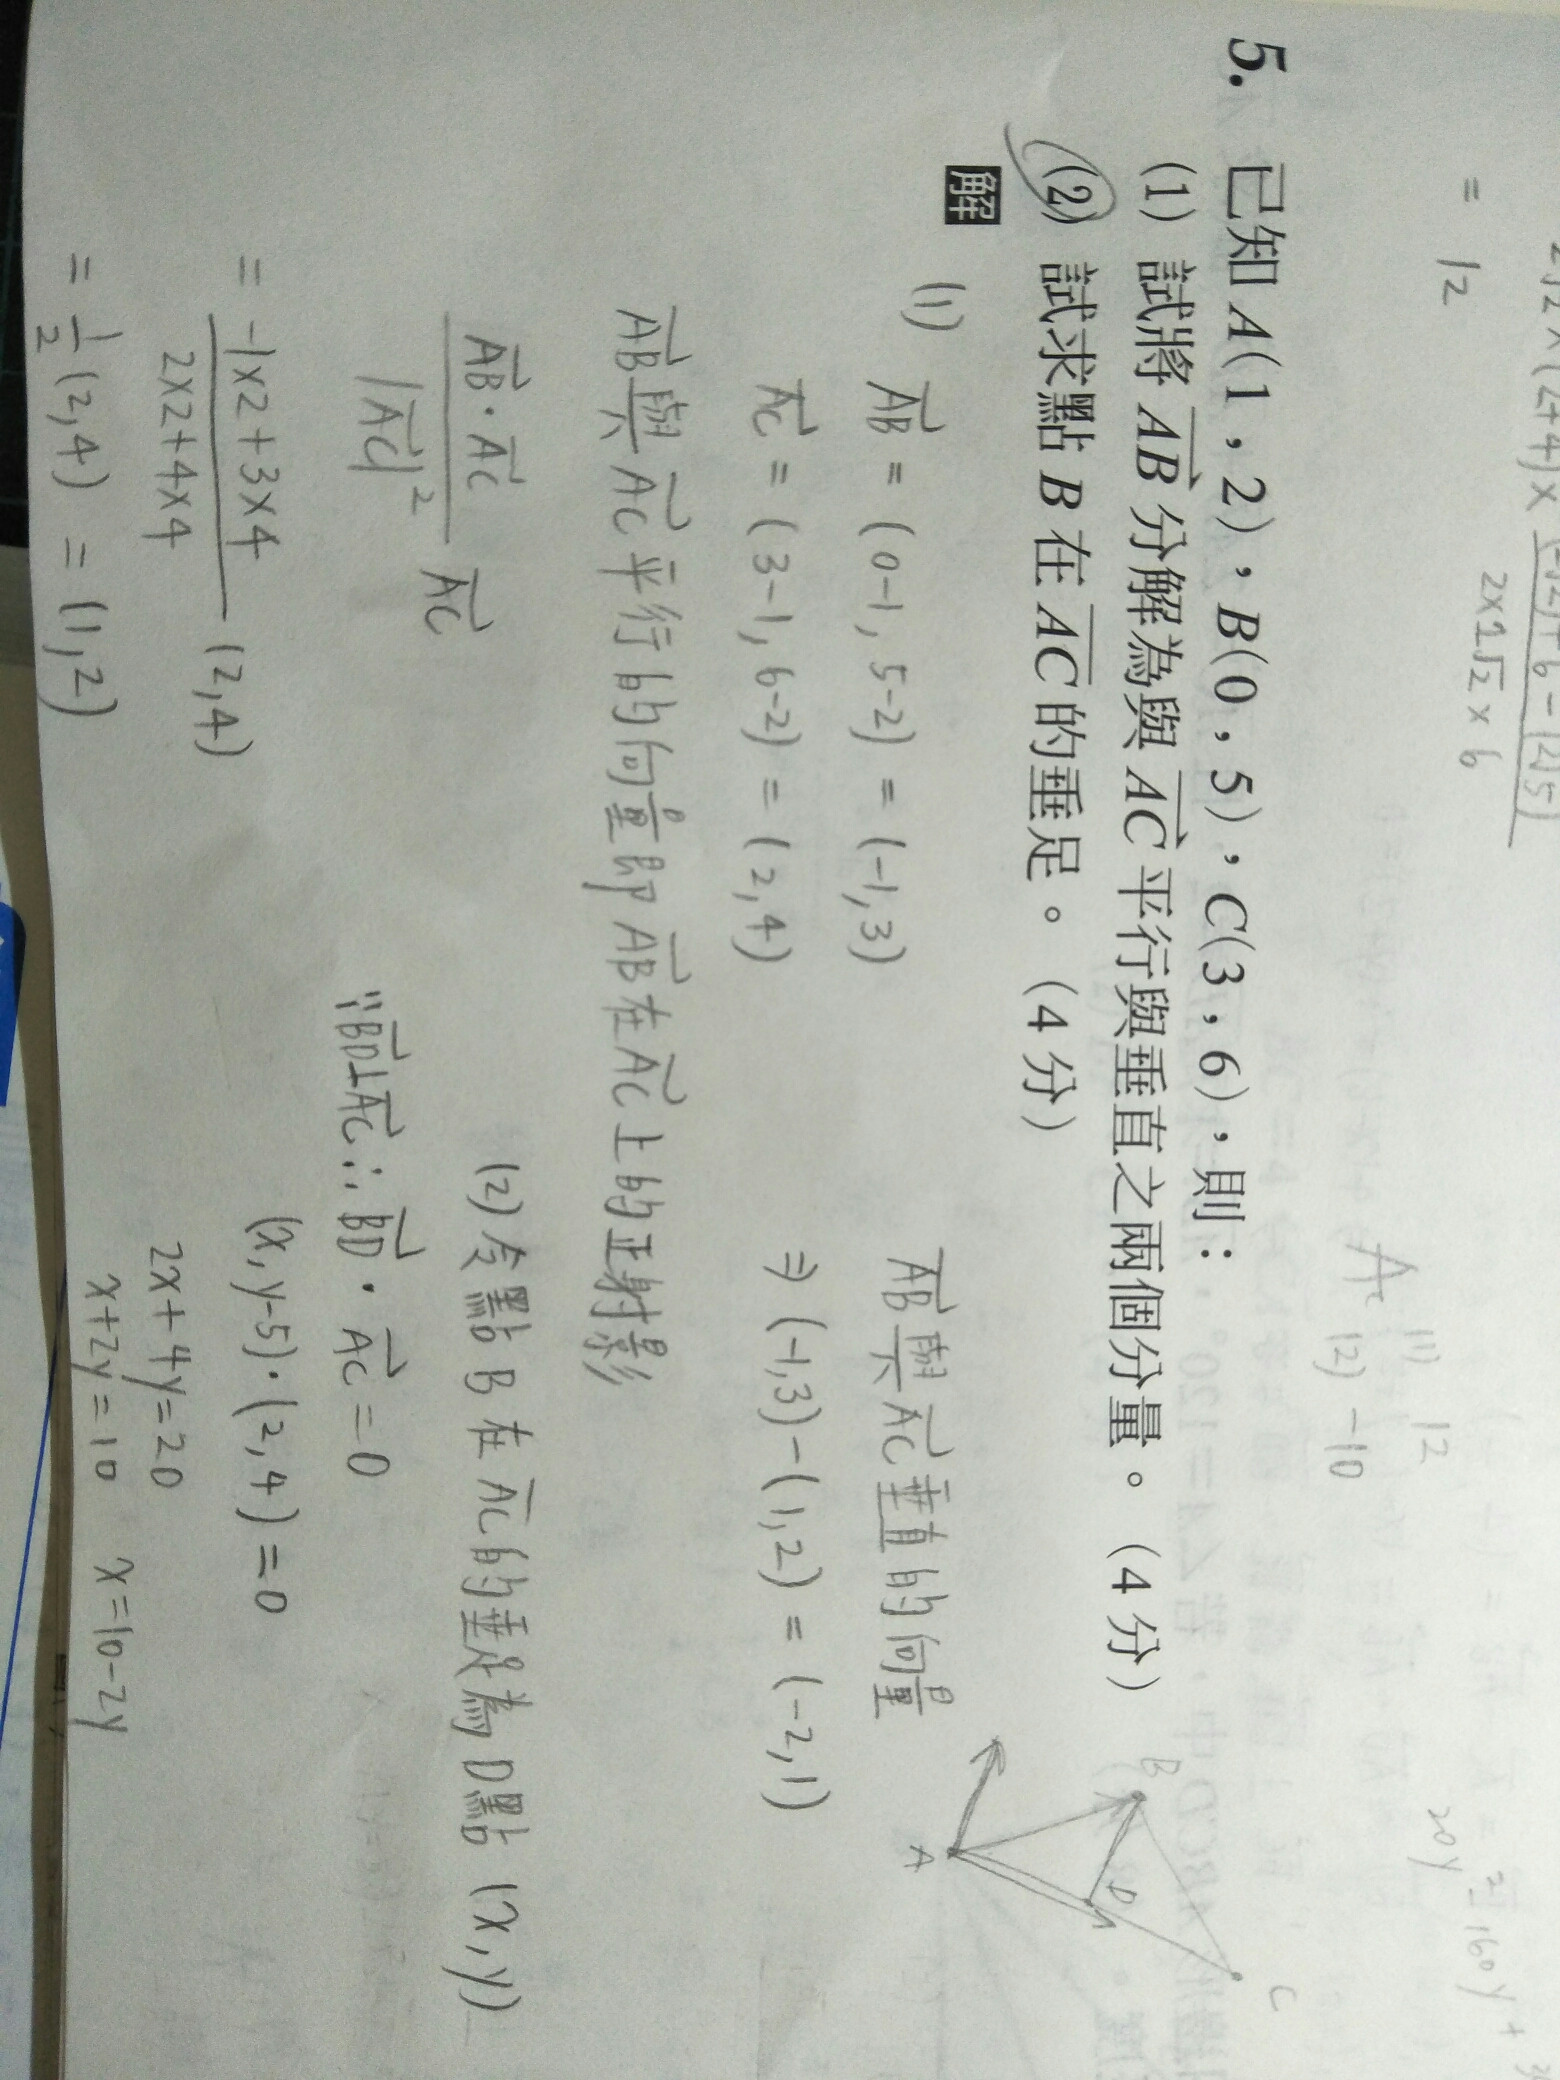 = 12
2×1√2 × 6
(1) 12
(2) -10
5. 已知 A(1,2),B(0,5),C(3,6),則:
(1) 試將 AB 分解為與 AC 平行與垂直之兩個分量。(4分)
(2) 試求點 B 在 AC 的垂足。(4分)
解
(1) AB = (0-1, 5-2) = (-1,3)
AC = (3-1, 6-2) = (2,4)
AB與AC平行的向量即AB在AC上的正射影
AB·AC
|AC|² AC
= -1×2+3×4
2×2+4×4 (2,4)
= 1/2 (2,4) = (1,2)
AB與AC垂直的向量
⇒ (-1,3)-(1,2) = (-2,1)
B
A
D
C
(2) 令點B在AC的垂足為D點 (x,y)
∵BD⊥AC ∴ BD·AC=0
(x,y-5)·(2,4)=0
2x+4y=20
x+2y=10 x=10-2y